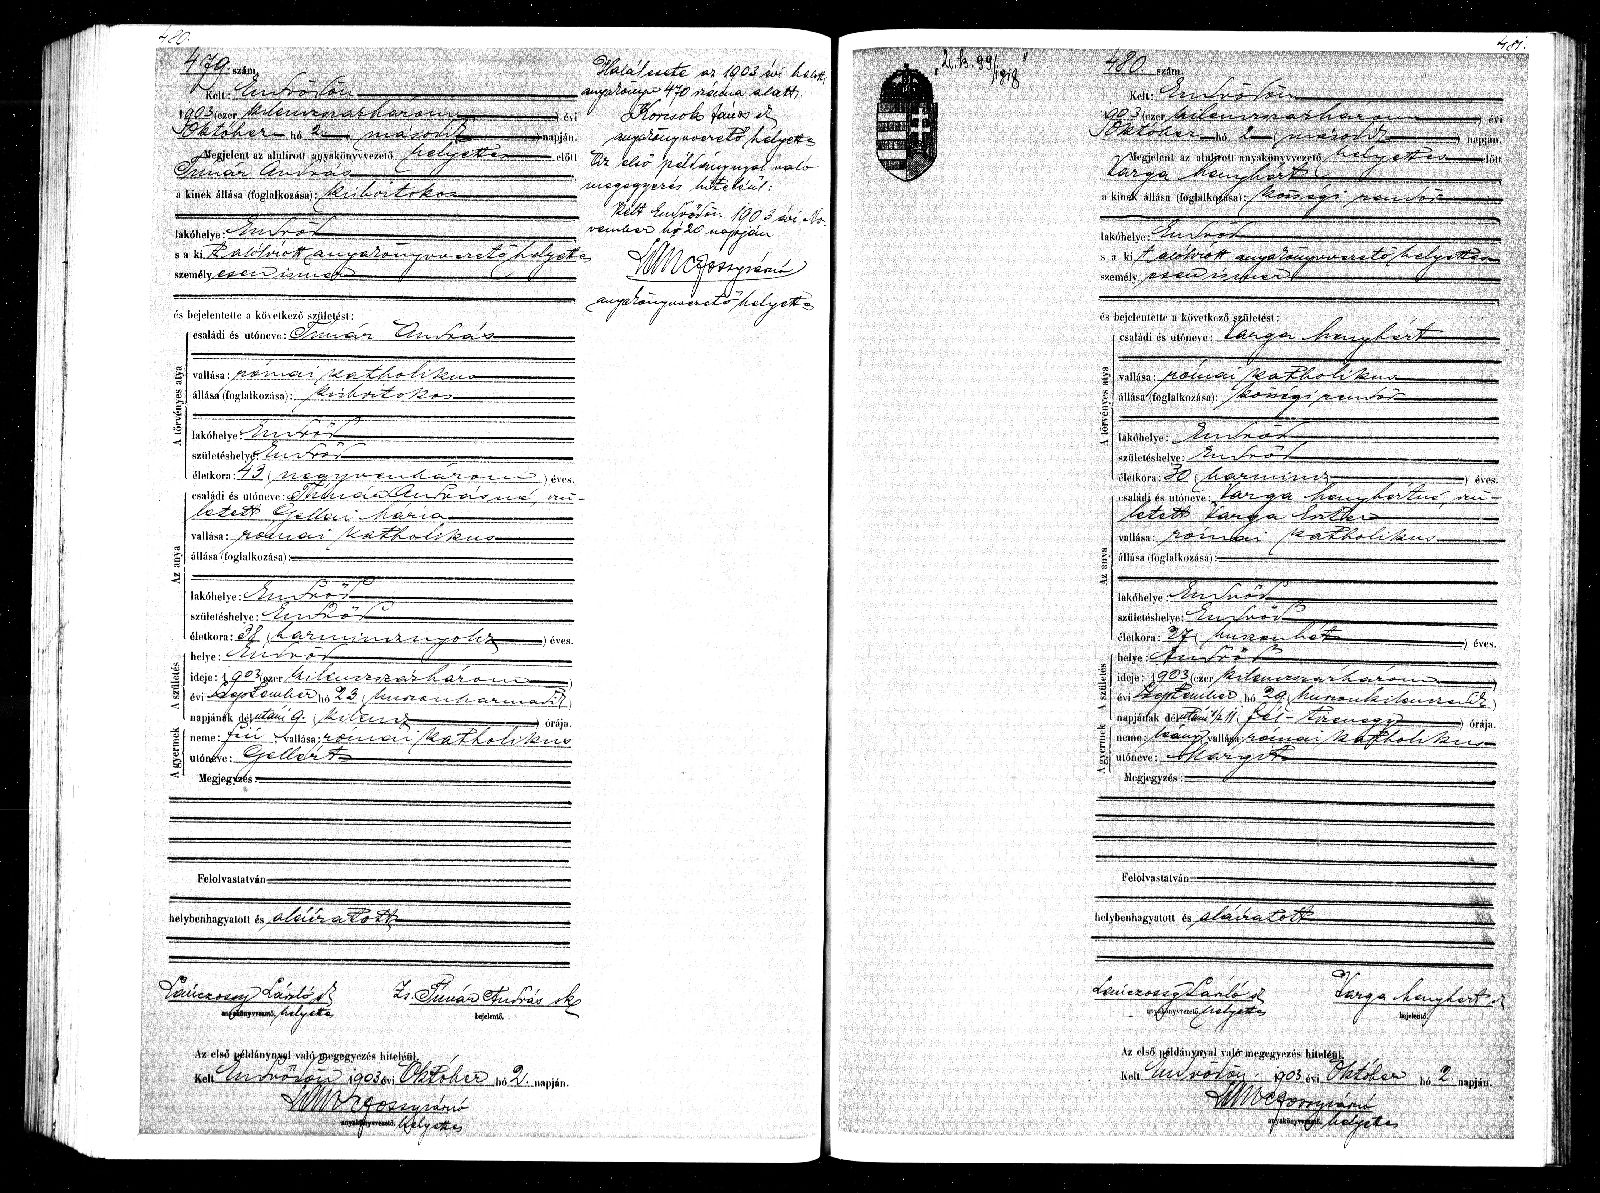 480.
479. szám.
Kelt: Endrődön
1903 (ezer kilenczszázhárom) évi
Október hó 2 (második) napján.
Megjelent az alulirott anyakönyvvezető helyettes előtt
Timár András
a kinek állása (foglalkozása): kisbirtokos
lakóhelye: Endrőd
s a kit alólirott anyakönyvvezető helyettes
személyesen ismer
és bejelentette a következő születést:
A törvényes atya
családi és utóneve: Timár András
vallása: római katholikus
állása (foglalkozása): kisbirtokos
lakóhelye: Endrőd
születéshelye: Endrőd
életkora: 43 (negyvenhárom) éves.
Az anya
családi és utóneve: Timár Andrásné, szü-
letett Gellai Mária
vallása: római katholikus
állása (foglalkozása):
lakóhelye: Endrőd
születéshelye: Endrőd
életkora: 38 (harmincznyolcz) éves.
A születés
helye: Endrőd
ideje: 1903 (ezer kilenczszázhárom)
évi September hó 23 (huszonharmadik)
napjának dél utáni 9. (kilencz) órája.
A gyermek
neme: fiú vallása: római katholikus
utóneve: Gellért
Megjegyzés:
Felolvastatván
helybenhagyatott és aláiratott
Lanczossy László sk
anyakönyvvezető. helyettes
Zs. Timár András sk
bejelentő.
Az első példánynyal való megegyezés hiteléül.
Kelt Endrődön 1903 évi Október hó 2. napján.
anyakönyvvezető. helyettes
Halálesete az 1903 évi halotti
anyakönyv 470 száma alatt.
János sk
anyakönyvvezető helyettes
Az első példánynyal való
megegyezés hiteléül:
Kelt Endrődön 1903 évi No-
vember hó 20 napján
anyakönyvvezető helyettes
481.
480. szám.
Kelt: Endrődön
1903 (ezer kilenczszázhárom) évi
Október hó 2 (második) napján.
Megjelent az alulirott anyakönyvvezető helyettes előtt
Varga Menyhért
a kinek állása (foglalkozása): községi rendőr
lakóhelye: Endrőd
s a kit alólirott anyakönyvvezető helyettes
személyesen ismer
és bejelentette a következő születést:
A törvényes atya
családi és utóneve: Varga Menyhért
vallása: római katholikus
állása (foglalkozása): községi rendőr
lakóhelye: Endrőd
születéshelye: Endrőd
életkora: 30 (harmincz) éves.
Az anya
családi és utóneve: Varga Menyhértné, szü-
letett Varga Eszter
vallása: római katholikus
állása (foglalkozása):
lakóhelye: Endrőd
születéshelye: Endrőd
életkora: 27 (huszonhét) éves.
A születés
helye: Endrőd
ideje: 1903 (ezer kilenczszázhárom)
évi September hó 29 (huszonkilenczedik)
napjának dél utáni 1/2 11 (fél-tizenegy) órája.
A gyermek
neme: leány vallása: római katholikus
utóneve: Margit
Megjegyzés:
Felolvastatván
helybenhagyatott és aláiratott
Lanczossy László sk
anyakönyvvezető. helyettes
Varga Menyhért sk
bejelentő.
Az első példánynyal való megegyezés hiteléül.
Kelt Endrődön 1903 évi Október hó 2 napján.
anyakönyvvezető. helyettes